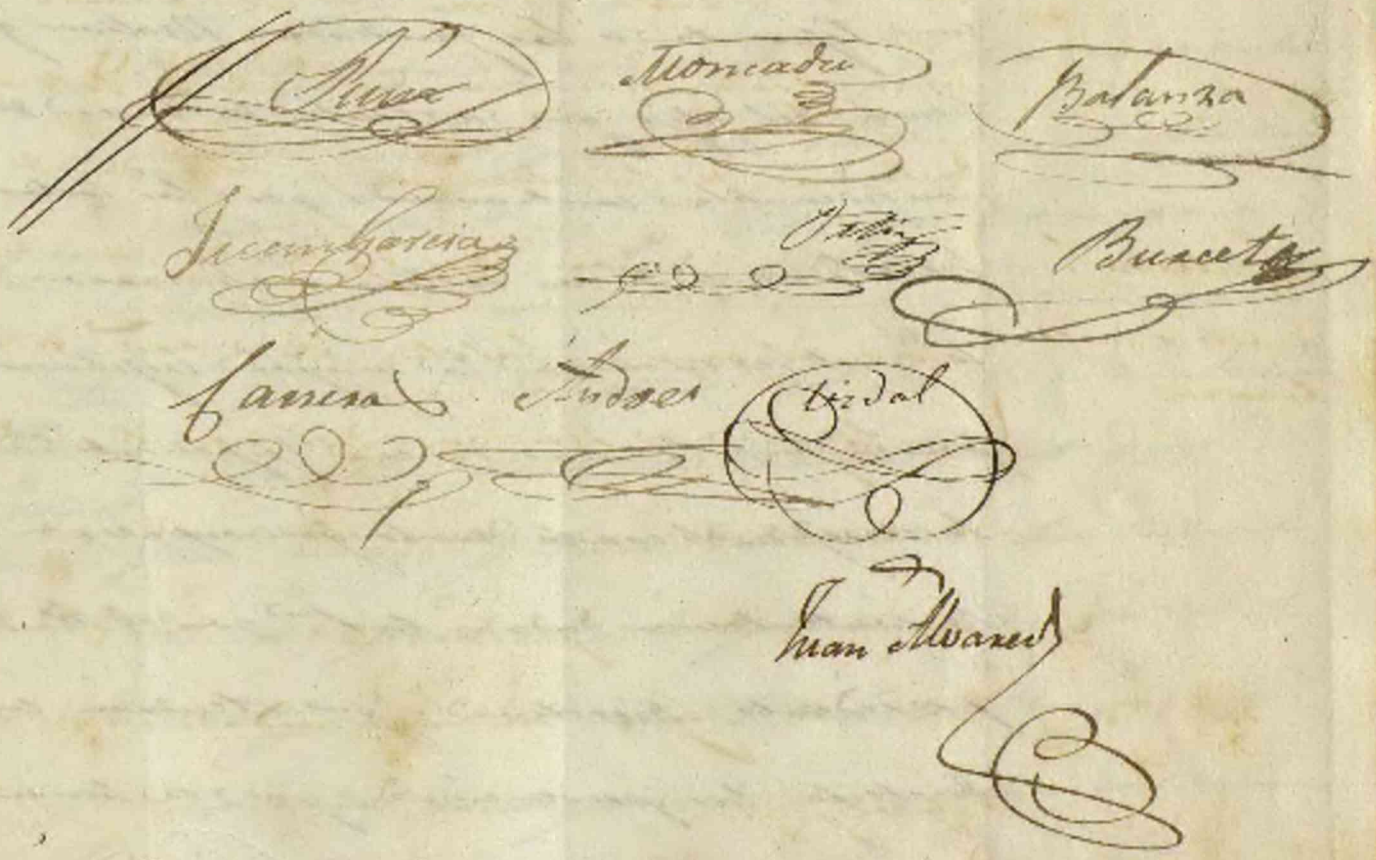 Moncada Balanza
Garcia Busceta
Carrera Andres Vidal
Juan Alvarez